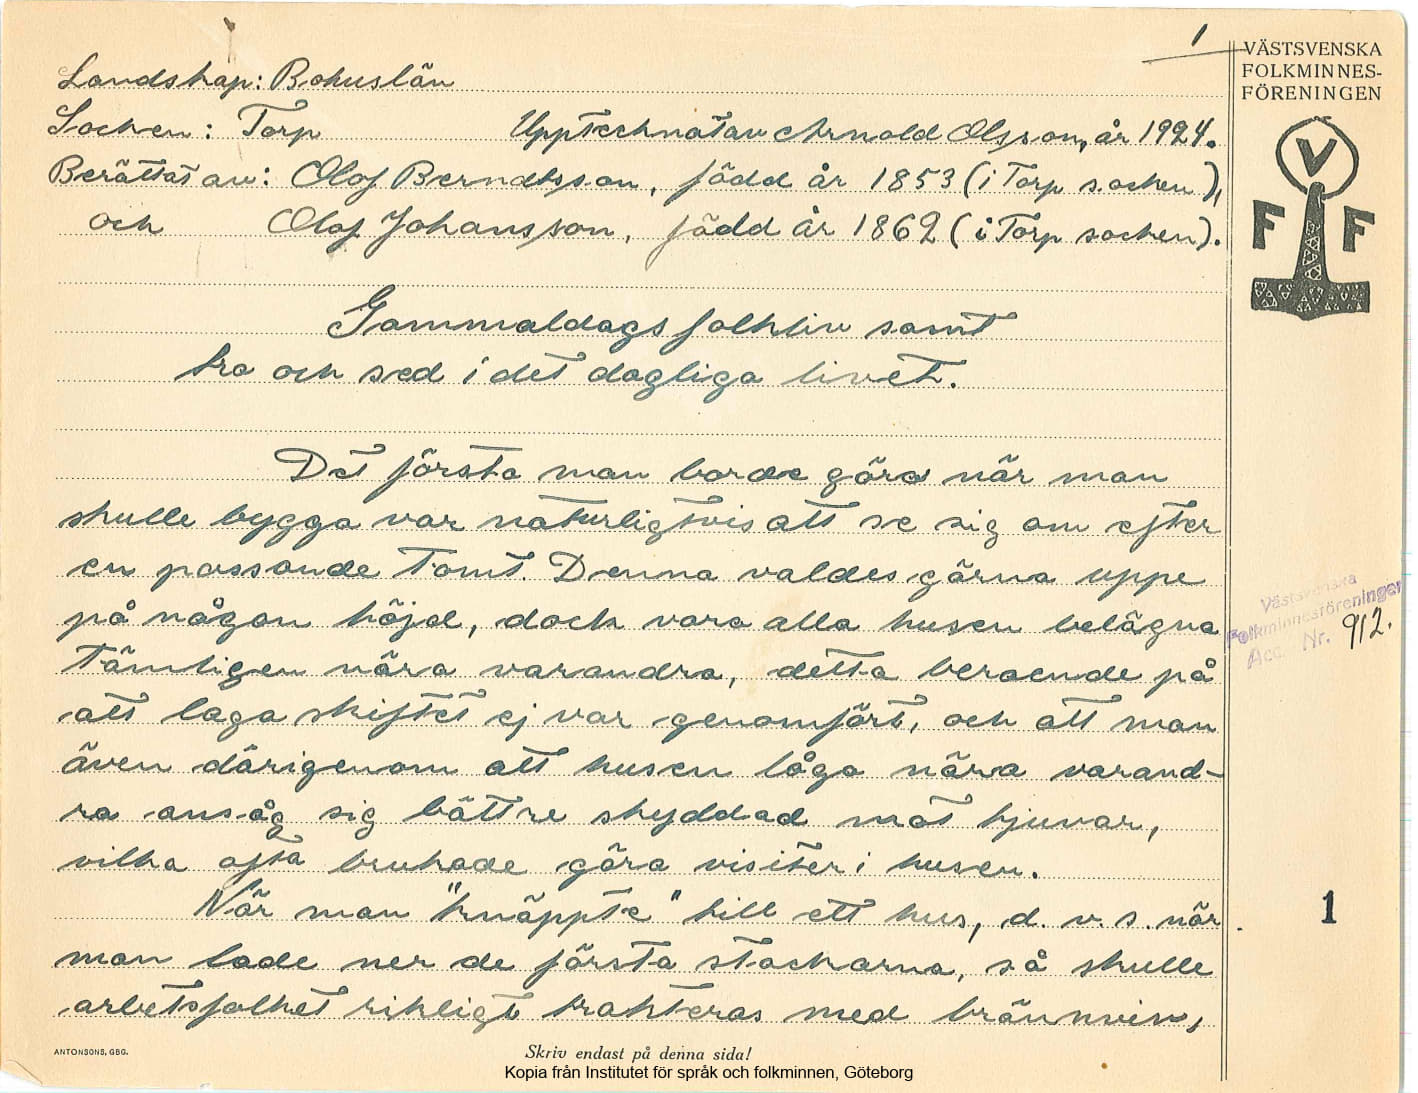 1
VÄSTSVENSKA
FOLKMINNES-
FÖRENINGEN
V
F F
Landskap: Bohuslän
Socken: Torp Upptecknat av Arnold Olsson, år 1924.
Berättat av: Olof Berndtsson, född år 1853 (i Torp socken),
och Olof Johansson, född år 1862 (i Torp socken).
Gammaldags folkliv samt
tro och sed i det dagliga livet.
Det första man borde göra när man
skulle bygga var naturligtvis att se sig om efter
en passande tomt. Denna valdes gärna uppe
på någon höjd, dock voro alla husen belägna
tämligen nära varandra, detta beroende på
att laga skiftet ej var genomfört, och att man
även därigenom att husen lågo nära varand-
ra ansåg sig bättre skyddad mot tjuvar,
vilka ofta brukade göra visiter i husen.
När man "knäppte" till ett hus, d. v. s. när
man lade ner de första stockarna, så skulle
arbetsfolket rikligt trakteras med brännvin,
Västsvenska
Folkminnesföreningen
Acc. Nr. 912.
1
ANTONSONS, GBG.
Skriv endast på denna sida!
Kopia från Institutet för språk och folkminnen, Göteborg